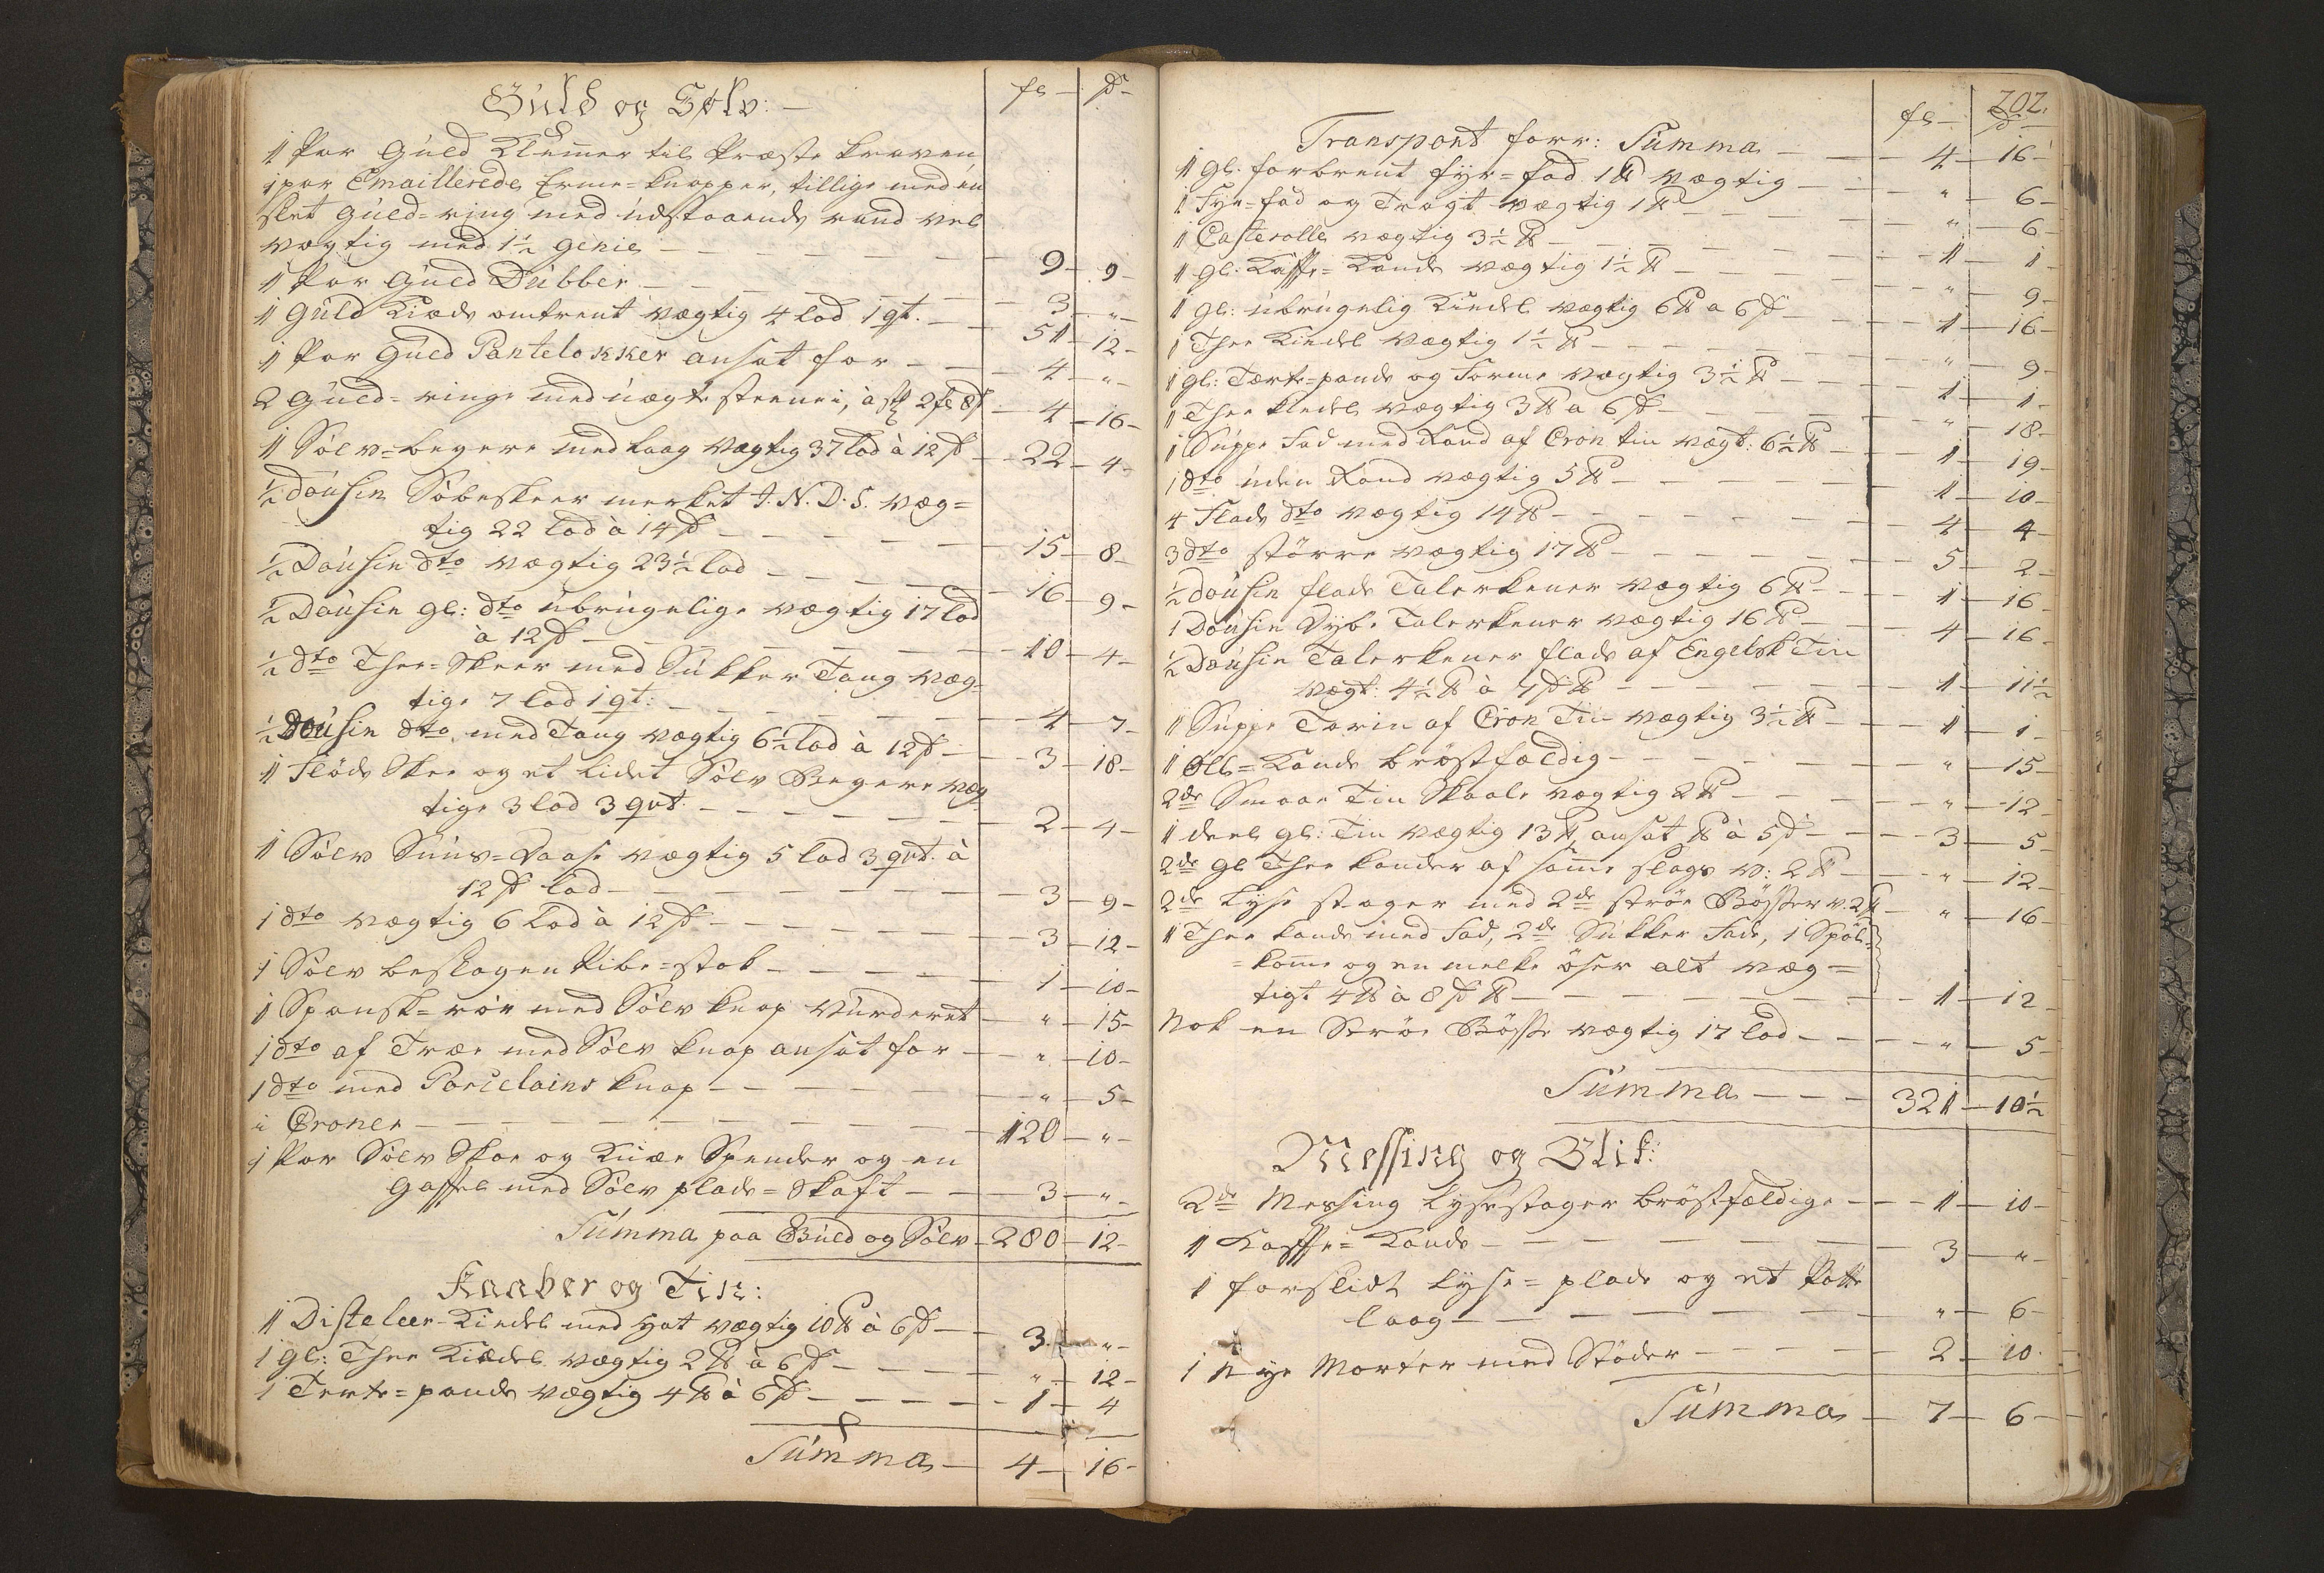 Guld og Sølv: —
fl — ß —
1 Par Guld Klemmer til Præste kraven
1 par Emaillerede Erme=knapper, tillige med en
slet Guld=ring med udstaaende rand vel
vægtig med 1½ Genie — 9 — 9 —
1 Par Guld Dubber — 3 — " —
1 Guld Kiæde omtrent vægtig 4 lod 1 qt. — 51 — 12 —
1 Par Guld Pantelokker ansat for — 4 — " —
2 Guld=ringe med uægte steene i, à stk 2 fl 8 ß — 4 — 16 —
1 Sølv=begere med laag vægtig 37 lod à 12 ß — 22 — 4 —
½ dousin Söbeskeer merket J. N. D. S. væg=
tig 22 lod à 14 ß — 15 — 8 —
½ Dousin dto vægtig 23½ lod — 16 — 9 —
½ Dousin gl: dto ubrugelige vægtig 17 lod
à 12 ß — 10 — 4 —
½ dto Thee=Skeer med Sukker Tang væg=
tige 7 lod 1 qt: — 4 — 7 —
½ Dousin dto med Tang vægtig 6½ lod à 12 ß — 3 — 18 —
1 Flöde Skee og et lidet Sölv Begere væg
tige 3 lod 3 qvt. — 2 — 4 —
1 Sölv Snuus=Daase vægtig 5 lod 3 qvt. à
12 ß lod — 3 — 9 —
1 dto vægtig 6 Lod à 12 ß — 3 — 12 —
1 Sölv beslagen Pibe=stok — 1 — 10 —
1 Spansk=rör med Sölv knap vurderet — " — 15 —
1 dto af Træe med Sölv knap ansat for — " — 10 —
1 dto med Porcelains knap — " — 5 —
i Croner — 120 — " —
1 Par Sölv Skoe og Knæe Spender og en
Gaffel med Sölv plade=Skaft — 3 — " —
Summa paa Guld og Sölv — 280 — 12 —
Kaaber og Tin:
1 Disteleer-Kiedel med Hat vægtig 10 ℔ à 6 ß — 3 — " —
1 gl: Thee Kiedel vægtig 2 ℔ à 6 ß — " — 12 —
1 Terte=pande vægtig 4 ℔ à 6 ß — 1 — 4
Summa — 4 — 16 —
202.
fl — ß
Transport forr: Summa — 4 — 16
1 gl. forbrent fyr=fad 1 ℔ vægtig — " — 6 —
1 Fyr=fad og Tragt vægtig 1 ℔ — " — 6 —
1 Casterolle vægtig 3½ ℔ — 1 — 1
1 gl. Kaffe=Kande vægtig 1½ ℔ — " — 9 —
1 gl: ubrugelig Kiedel vægtig 6 ℔ a 6 ß — 1 — 16 —
1 Thee Kiedel vægtig 1½ ℔ — " — 9 —
1 gl: Tærte=pande og Forme vægtig 3½ ℔ — 1 — 1 —
1 Thee kiedel vægtig 3 ℔ a 6 ß — " — 18 —
1 Suppe Fad med Rand af Cron tin vægt. 6½ ℔ — 1 — 19 —
1 dto uden Rand vægtig 5 ℔ — 1 — 10 —
4 Flade dto vægtig 14 ℔ — 4 — 4
3 dto större vægtig 17 ℔ — 5 — 2 —
½ dousin flade Talerkener vægtig 6 ℔ — 1 — 16 —
1 Dousin Dybe Talerkener vægtig 16 ℔ — 4 — 16 —
½ Dousin Talerkener flade af Engelsk Tin
vægt: 4½ ℔ à 7 ß ℔ — 1 — 11½
1 Suppe Tarin af Cron Tin vægtig 3½ ℔ — 1 — 1 —
1 Öll=Kande bröstfældig — " — 15 —
2de Smaae Tin Skaale vægtig 2 ℔ — " — 12 —
1 deel gl: Tin vægtig 13 ℔, ansat ℔ à 5 ß — 3 — 5 —
2de gl Thee kander af samme slags v: 2 ℔ — " — 12 —
2de Lyse stager med 2de ströe Bösser v. 2 ℔ — " — 16 —
1 Thee kande med Fad, 2de Sukker Fade, 1 Spöl=
=komme og en melke öser alt væg=
tigt 4 ℔ à 8 ß ℔ — 1 — 12
Nok en Ströe Bösse vægtig 17 lod — " — 5 —
Summa — 321 — 10½
Messing og Blik:
2de Messing Lysestager bröstfældige — 1 — 10 —
1 Kaffe=Kande — 3 — "
1 forslidt Lyse=plade og et Potte
laag — " — 6 —
1 Nye Morter med Stöder — 2 — 10
Summa — 7 — 6 —